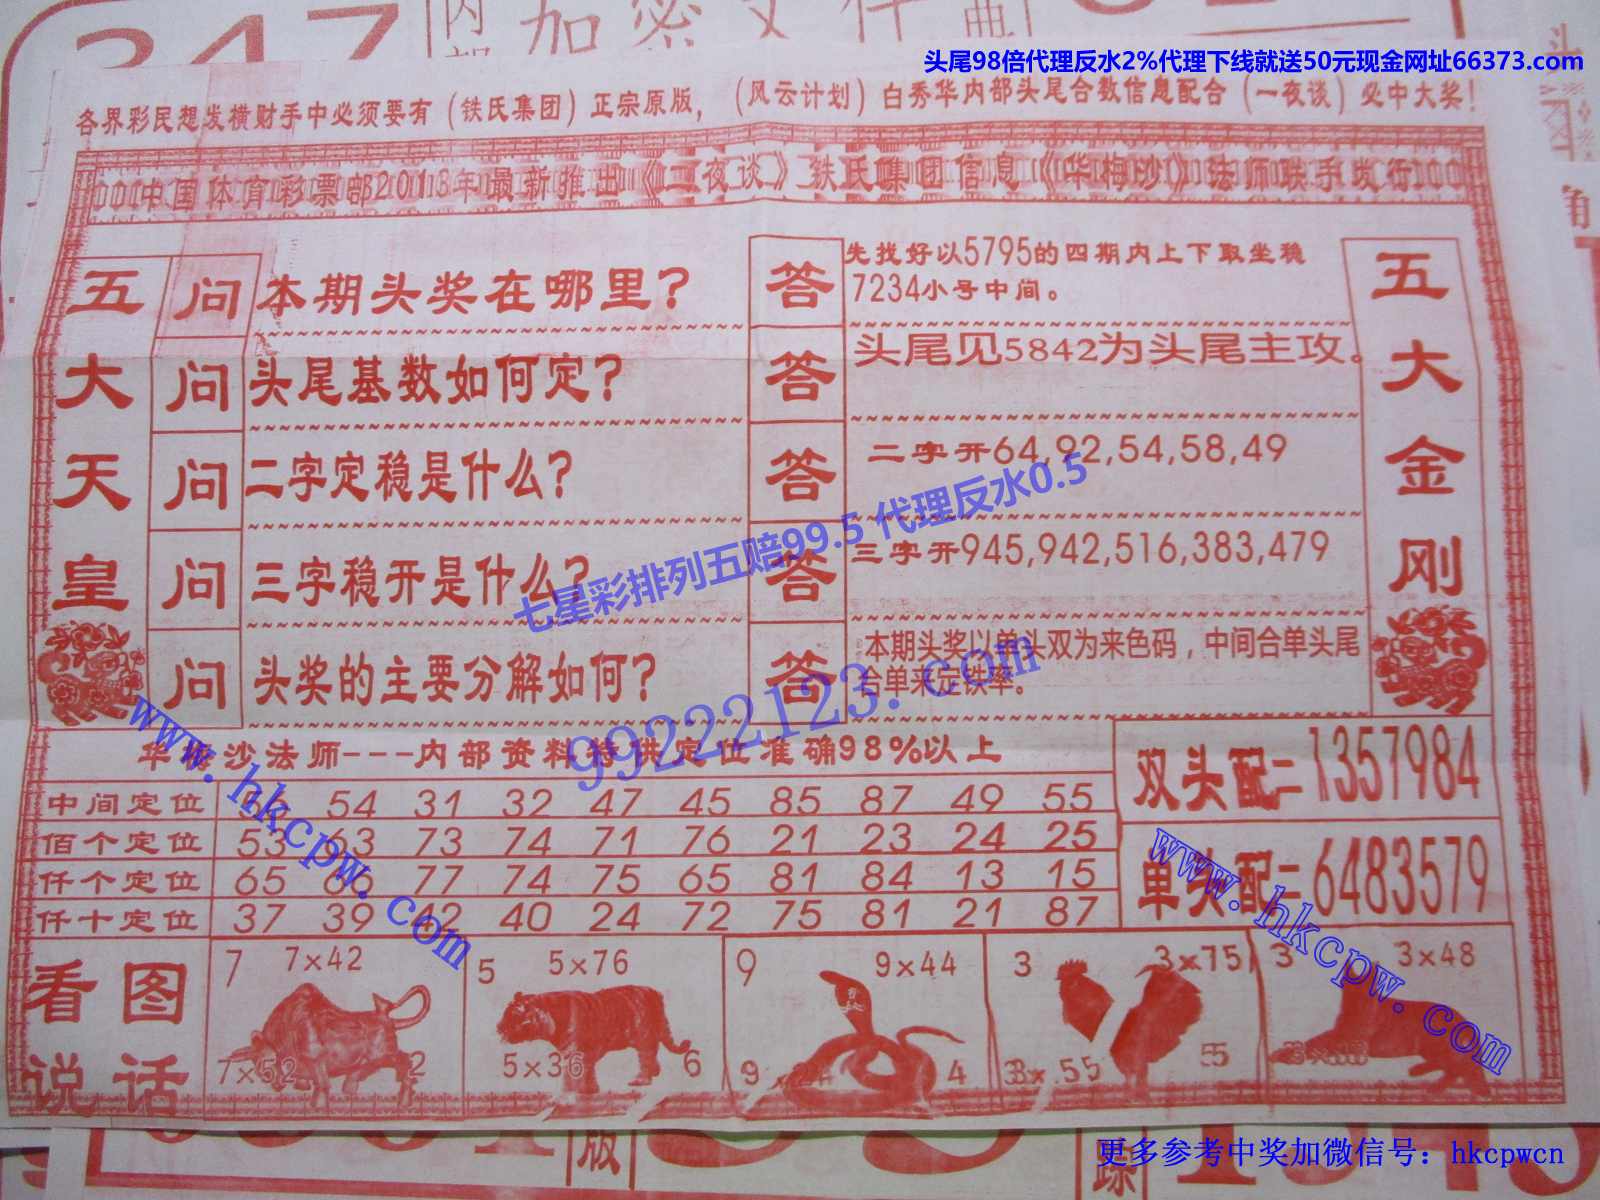 347
内部
加密文件
头尾98倍代理反水2%代理下线就送50元现金网址66373.com
各界彩民想发横财手中必须要有(铁氏集团)正宗原版,(风云计划)白秀华内部头尾合数信息配合(一夜谈)必中大奖!
中国体育彩票部2013年最新推出《二夜谈》铁氏集团信息《华梅沙》法师联手发行
五大天皇
问 本期头奖在哪里?
答 先找好以5795的四期内上下取坐稳
7234小号中间。
问 头尾基数如何定?
答 头尾见5842为头尾主攻。
问 二字定稳是什么?
答 二字开64,92,54,58,49
问 三字稳开是什么?
答 三字开945,942,516,383,479
问 头奖的主要分解如何?
答 本期头奖以单头双为来色码,中间合单头尾
合单来定铁率。
五大金刚
七星彩排列五赔99.5 代理反水0.5
99222123.com
www.hkcpw.com
华梅沙法师---内部资料特供定位准确98%以上
中间定位 54 31 32 47 45 85 87 49 55
佰个定位 53 63 73 74 71 76 21 23 24 25
仟个定位 65 77 74 75 65 81 84 13 15
仟十定位 37 39 42 40 24 72 75 81 21 87
双头配二1357984
单头配二6483579
www.hkcpw.com
看图
说话
7 7×42
7×52 2
5 5×76
5×36 6
9 9×44
9×24 4
3 3×75
3×55 55
3 3×48
版
踪
更多参考中奖加微信号：hkcpwcn